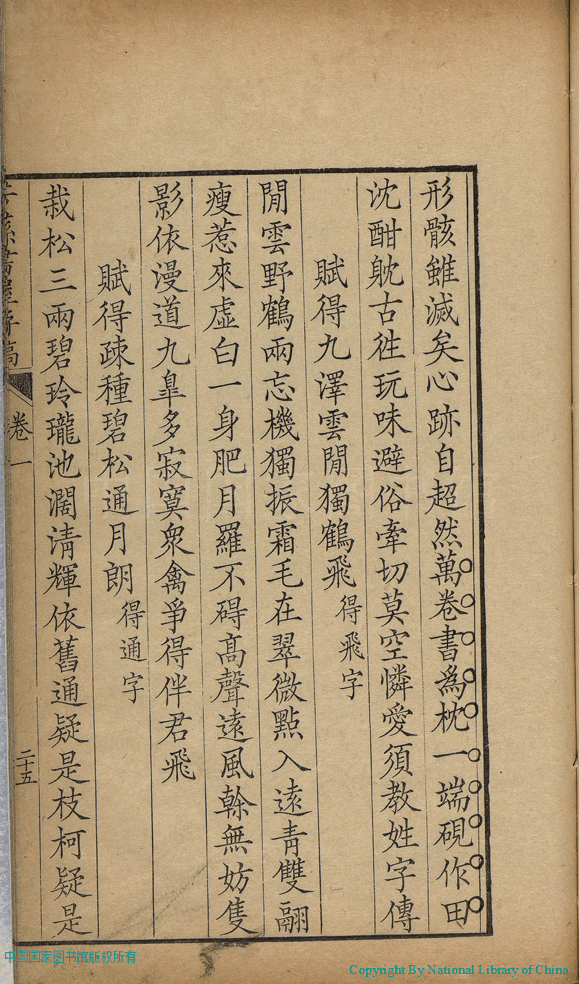 形骸雖滅矣心跡自超然萬卷書爲枕一端硯作田
沈酣躭古徃玩味避俗牽切莫空憐愛須教姓字傳
賦得九澤雲閒獨鶴飛得飛字
閒雲野鶴兩忘機獨振霜毛在翠微點入遠青雙翮
瘦惹來虛白一身肥月羅不碍高聲遠風榦無妨隻
影依漫道九臯多寂寞衆禽爭得伴君飛
賦得疎種碧松通月朗得通字
栽松三兩碧玲瓏池濶清輝依舊通疑是枝柯疑是
卷一
二十五
中国国家图书馆版权所有
Copyright By National Library of China